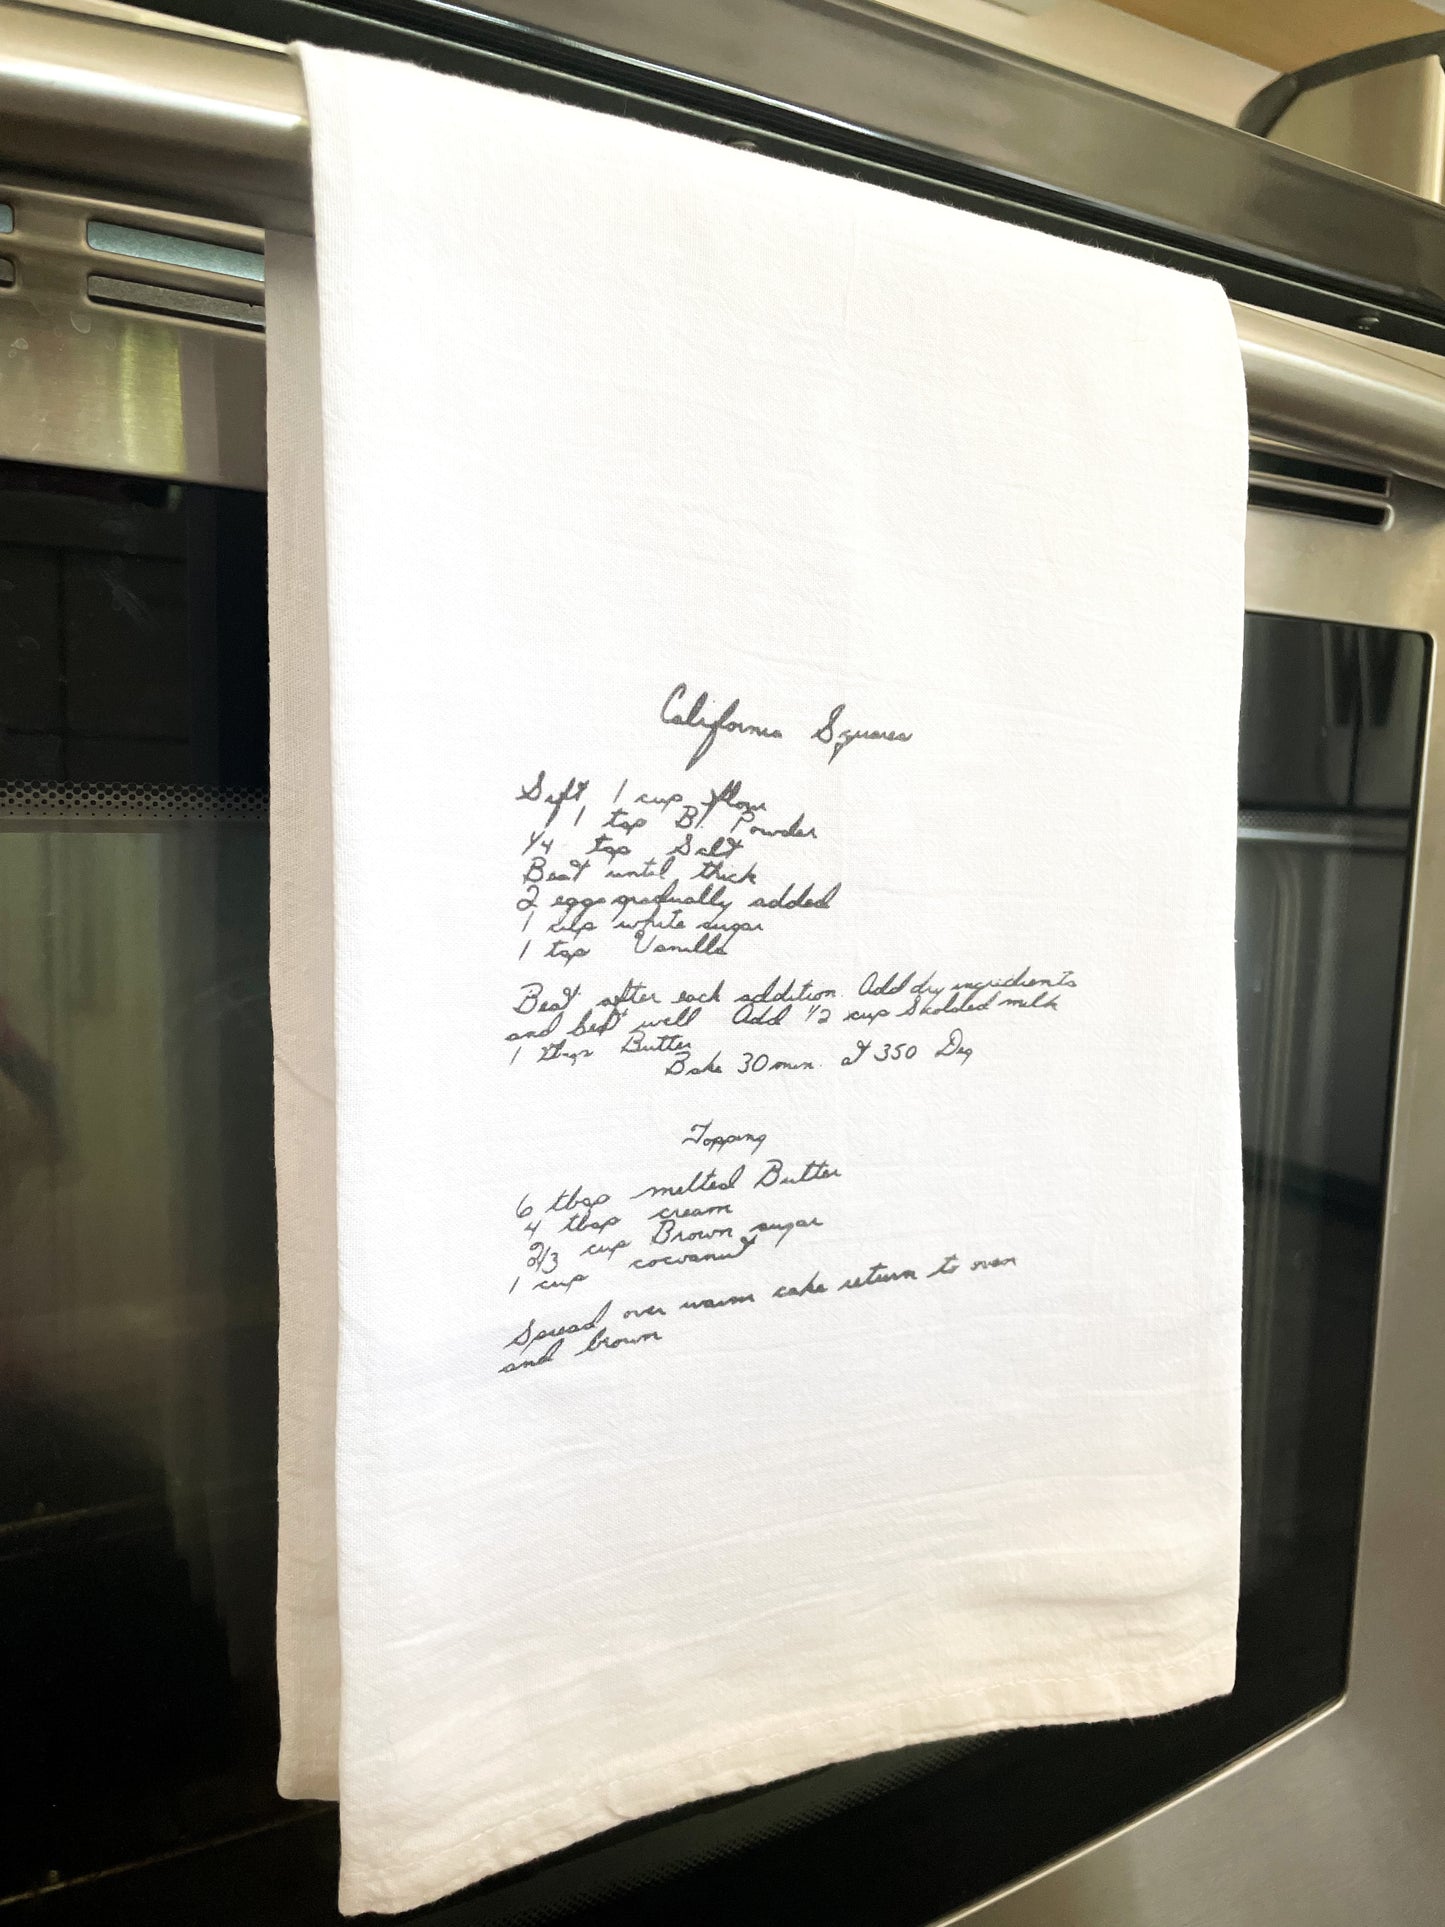 California Squares
Sift 1 cup flour
1 tsp B. Powder
1/4 tsp Salt
Beat until thick
2 eggs gradually added
1 cup white sugar
1 tsp Vanilla
Beat after each addition. Add dry ingridients
and beat well Add 1/2 cup Scolded milk
1 tbsp Butter
Bake 30 min. at 350 Deg
Topping
6 tbsp melted Butter
4 tbsp cream
2/3 cup Brown sugar
1 cup cocoanut
Spread over warm cake return to oven
and brown